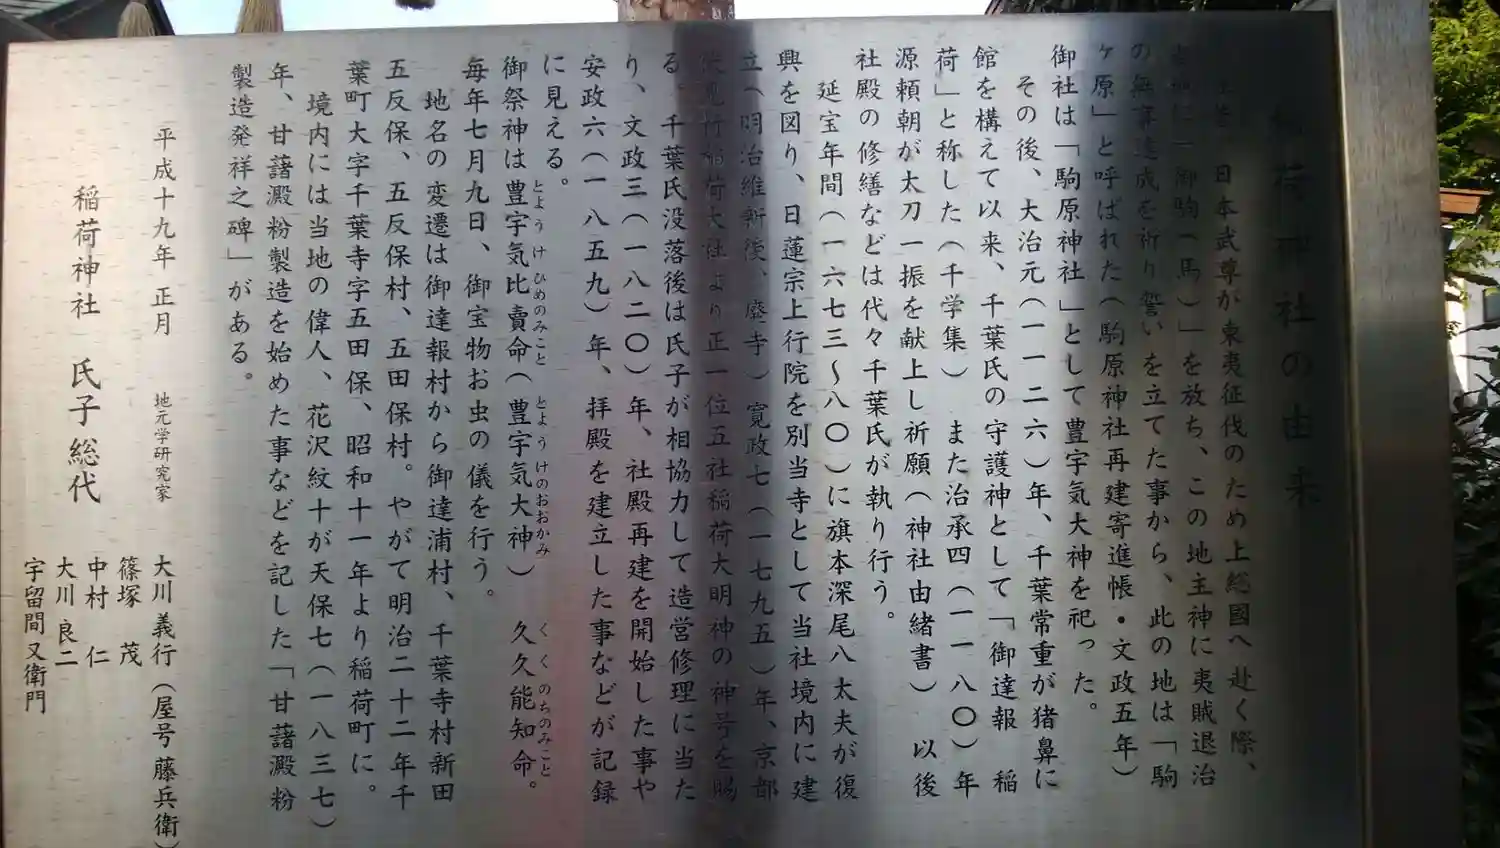 稲荷神社の由来
日本武尊が東夷征伐のため上総國へ赴く際、
「御駒(馬)」を放ち、この地主神に夷賊退治
の無事達成を祈り誓いを立てた事から、此の地は「駒
ヶ原」と呼ばれた(駒原神社再建寄進帳・文政五年)
御社は「駒原神社」として豊宇気大神を祀った。
その後、大治元(一一二六)年、千葉常重が猪鼻に
館を構えて以来、千葉氏の守護神として「御達報 稲
荷」と称した(千学集) また治承四(一一八〇)年
源頼朝が太刀一振を献上し祈願(神社由緒書) 以後
社殿の修繕などは代々千葉氏が執り行う。
延宝年間(一六七三～八〇)に旗本深尾八太夫が復
興を図り、日蓮宗上行院を別当寺として当社境内に建
立(明治維新後、廃寺)寛政七(一七九五)年、京都
伏見稲荷大社より正一位五社稲荷大明神の神号を賜
る。千葉氏没落後は氏子が相協力して造営修理に当た
り、文政三(一八二〇)年、社殿再建を開始した事や
安政六(一八五九)年、拝殿を建立した事などが記録
に見える。
御祭神は豊宇気比賣命(豊宇気大神) 久久能知命。
とようけひめのみこと とようけのおおかみ くくのちのみこと
毎年七月九日、御宝物お虫の儀を行う。
地名の変遷は御達報村から御達浦村、千葉寺村新田
五反保、五反保村、五田保村。やがて明治二十二年千
葉町大字千葉寺字五田保、昭和十一年より稲荷町に。
境内には当地の偉人、花沢紋十が天保七(一八三七)
年、甘藷澱粉製造を始めた事などを記した「甘藷澱粉
製造発祥之碑」がある。
平成十九年 正月 地元学研究家 大川義行(屋号藤兵衛)
稲荷神社 氏子総代 篠塚 茂
中村 仁
大川良二
宇留間又衛門